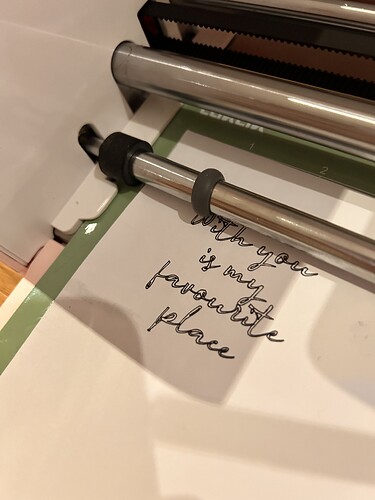 1 2
With you
is my
favourite
place